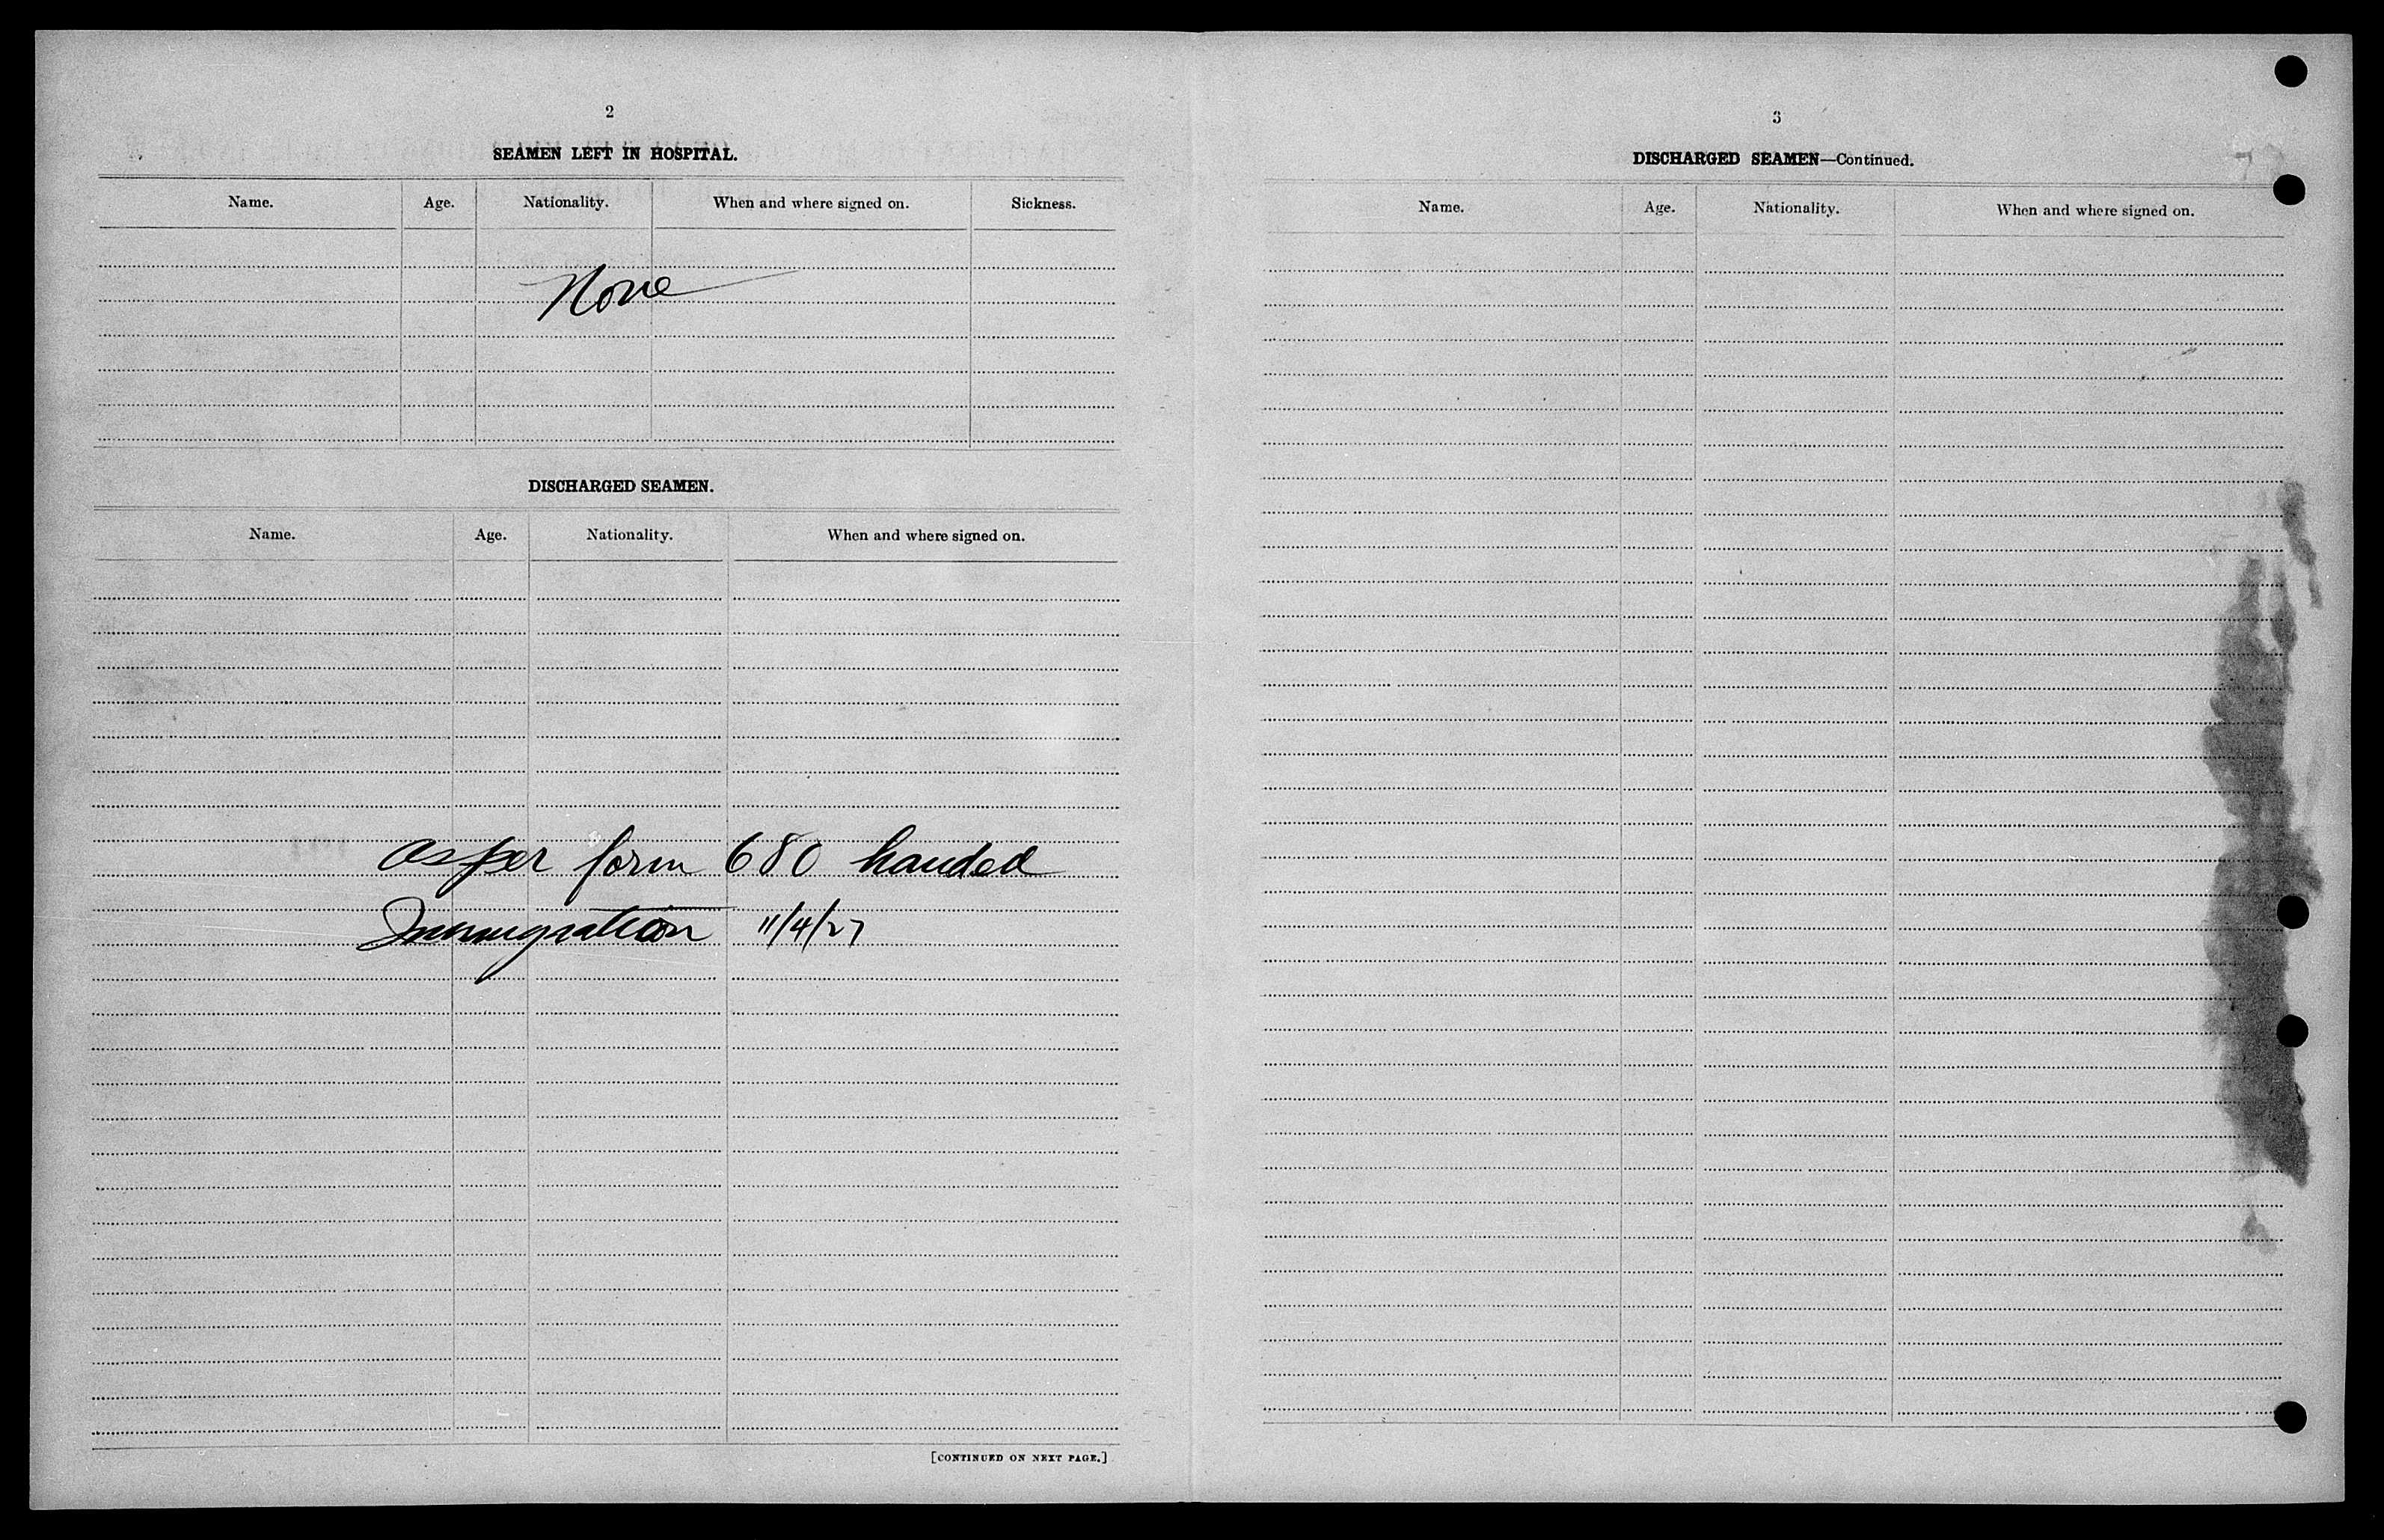 2
SEAMEN LEFT IN HOSPITAL.
Name. Age. Nationality. When and where signed on. Sickness.
None
DISCHARGED SEAMEN.
Name. Age. Nationality. When and where signed on.
as per form 680 handed
Immigration 11/4/27
[CONTINUED ON NEXT PAGE.]
3
DISCHARGED SEAMEN—Continued.
Name. Age. Nationality. When and where signed on.